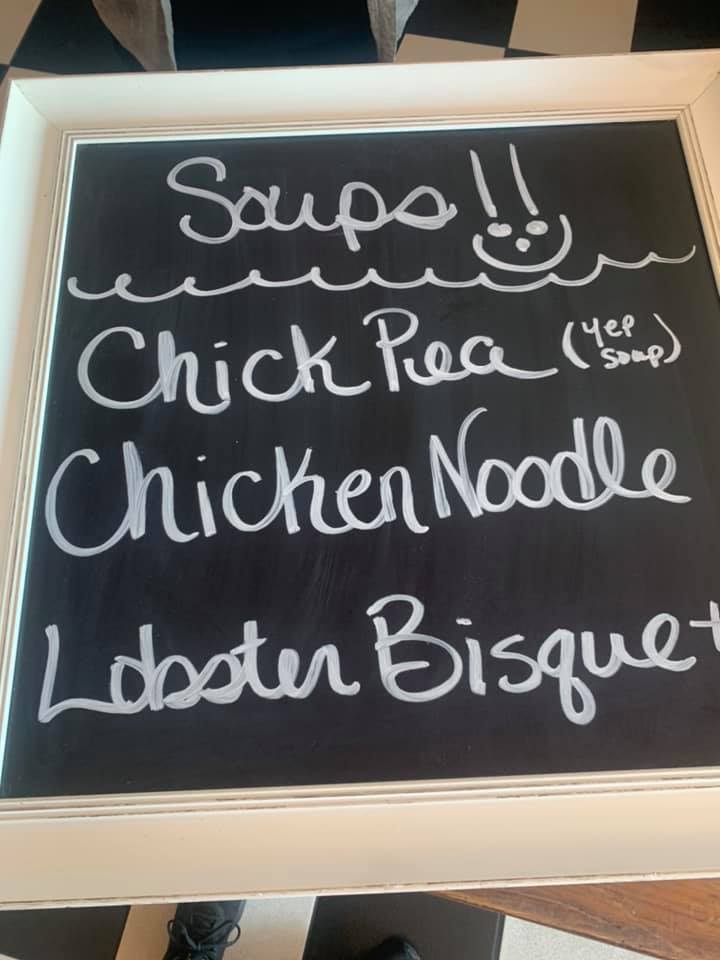 Soups!!
Chick Pea (yep soup)
Chicken Noodle
Lobster Bisque +